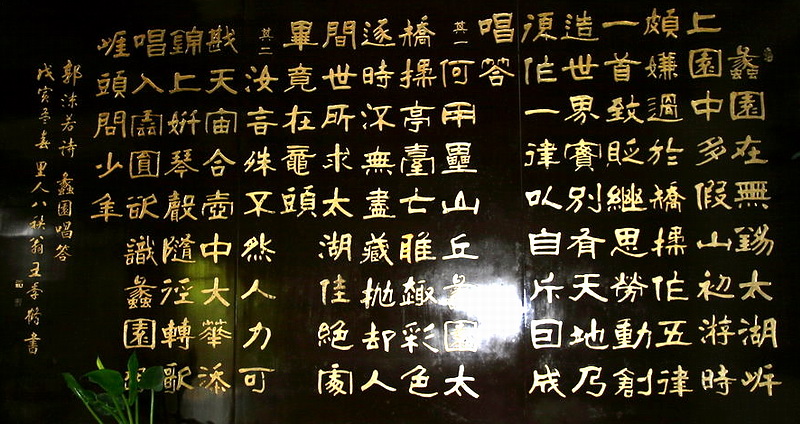 蠡園在無錫太湖岸
上園中多假山初游時
頗嫌過於矯揉作五律
一首致貶繼思勞動創
造世界實別有天地乃
復作一律以自斥因成
唱答
其一 何用壘山丘蠡園太
矯揉亭臺亡雅趣彩色
逐時流無盡藏拋却人
間世所求太湖佳絕處
畢竟在黿頭
其二 汝言殊不然人力可
戡天宙合壺中大華添
錦上妍琴聲隨徑轉歌
唱入雲圓欲識蠡園
崖頭問少年
郭沫若詩 蠡園唱答
戊寅季春 里人八秩翁王季脩書